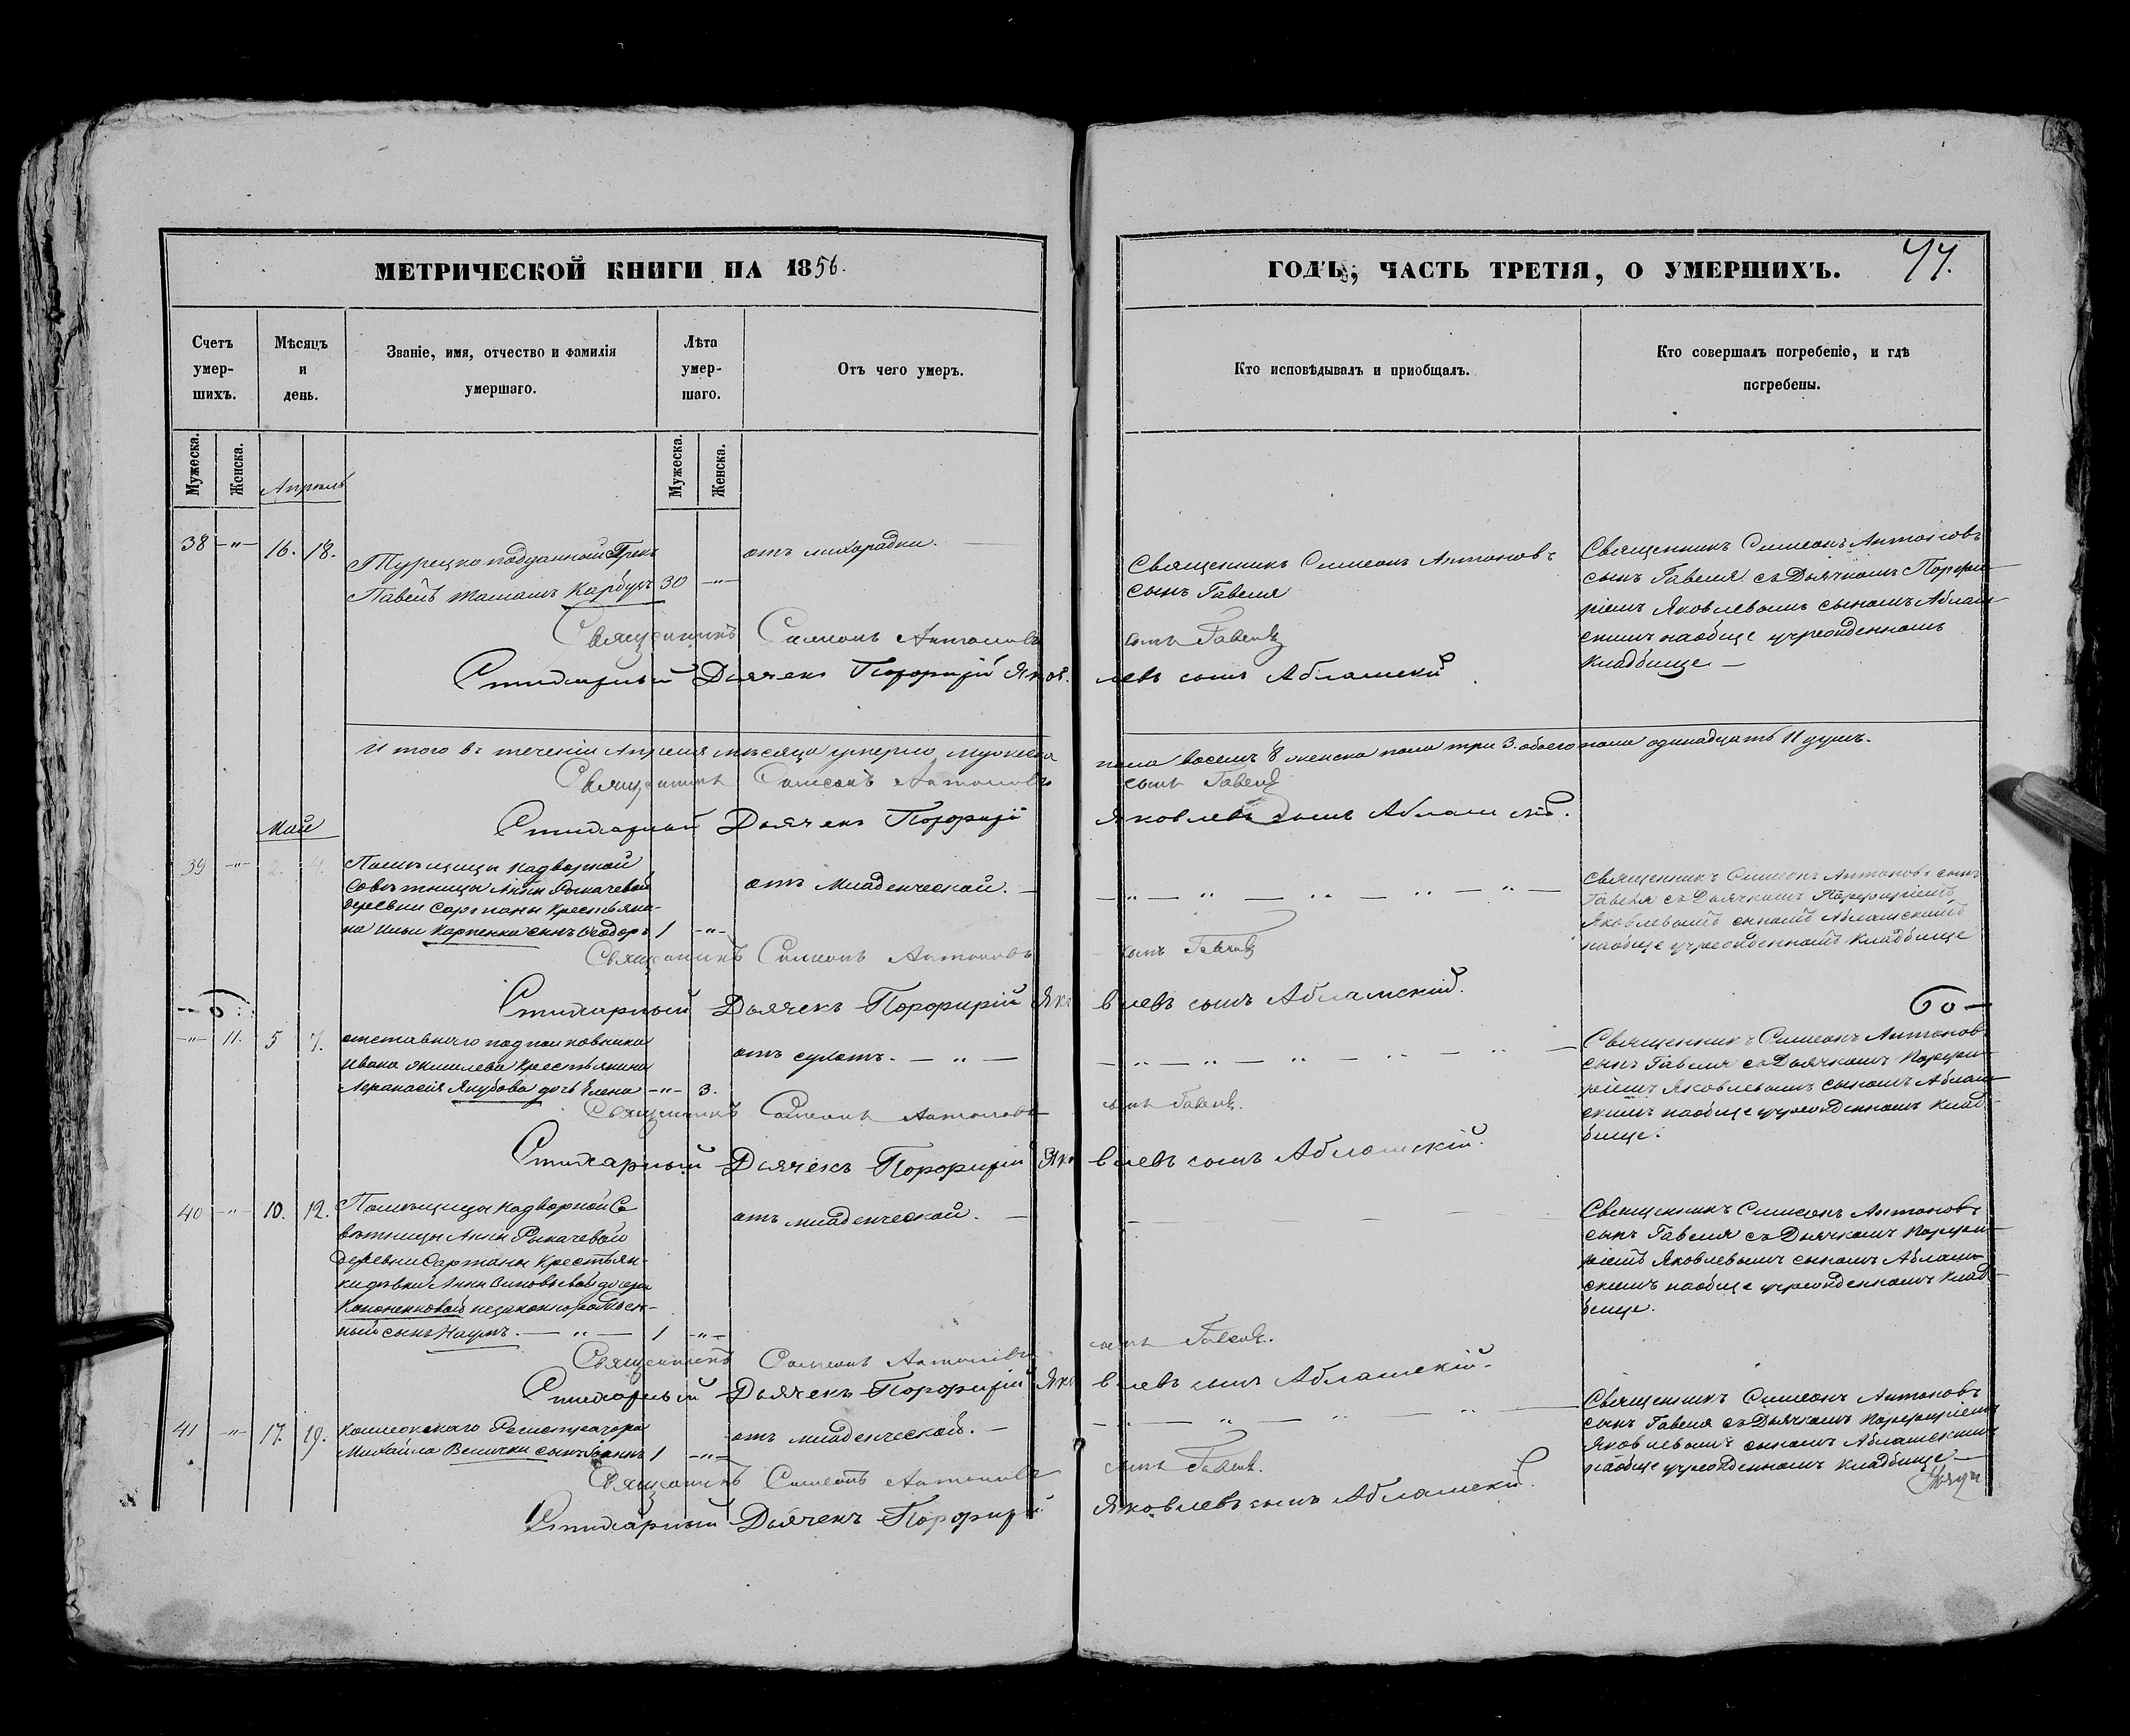 МЕТРИЧЕСКОЙ КНИГИ НА 1856.
Счетъ умер- шихъ.
Мѣсяцъ и день.
Званіе, имя, отчество и фамилія умершаго.
Лѣта умер- шаго.
Отъ чего умеръ.
Мужеска. Женска.
Мужеска. Женска.
Апрель
38 -"- 16. 18.
Турецко подданный Грекъ
Павелъ 30 -"-
отъ лихорадки.
Священникъ Симеонъ Антоновъ
Стихарный Дьячекъ Порфирій Яков.
Итого въ теченіи Апреля мѣсяца умерло мужеска
Священникъ Симеонъ Антоновъ
Стихарный Дьячекъ Порфирій
Май
39 -"- 2. 4.
Помѣщицы Надворной
Совѣтницы Анны Рыкачевой
деревни Сартаны Крестьяни-
на Ильи Карпенка сынъ Феодоръ 1 -"-
отъ младенческой.
Священникъ Симеонъ Антоновъ
Стихарный Дьячекъ Порфирій Яко
-"- 11. 5 7.
отставнаго подполковника
Ивана Крестьянина
Афанасія Якубова дочь Елена -"- 3.
отъ сухотъ.
Священникъ Симеонъ Антоновъ
Стихарный Дьячекъ Порфирій Яко
40 -"- 10. 12.
Помѣщицы Надворной Со
вѣтницы Анны Рыкачевой
деревни Сартаны Крестьян-
ки дѣвки Анны дочери
незаконнорожден-
ный сынъ Наумъ. 1 -"-
отъ младенческой.
Священникъ Симеонъ Антоновъ
Стихарный Дьячекъ Порфирій Яко
41 -"- 17. 19.
Колежскаго Регистратора
Михайла Велички сынъ Іоаннъ 1 -"-
отъ младенческой.
Священникъ Симеонъ Антоновъ
Стихарный Дьячекъ Порфирій
ГОДЪ, ЧАСТЬ ТРЕТІЯ, О УМЕРШИХЪ.
Кто исповѣдывалъ и приобщалъ.
Кто совершалъ погребеніе, и гдѣ погребены.
Священникъ Симеонъ Антоновъ
сынъ Гавеля
Священникъ Симеонъ Антоновъ
сынъ Гавеля съ Дьячкомъ Порфи-
ріемъ Яковлевымъ сыномъ Аблам-
скимъ наобще учрежденномъ
кладбище
сынъ Гавеля
левъ сынъ Абламскій
пола восемь 8 женска пола три 3. обоего пола одинадцать 11 душъ.
сынъ Гавеля
Яковлевъ сынъ Абламскій.
Священникъ Симеонъ Антоновъ сынъ
Гавеля съ Дьячкомъ Порфиріемъ
Яковлевымъ сыномъ Абламскимъ
наобще учрежденномъ кладбище
сынъ Гавеля
влевъ сынъ Абламскій.
Священникъ Симеонъ Антоновъ
сынъ Гавеля съ Дьячкомъ Порфи-
ріемъ Яковлевымъ сыномъ Аблам-
скимъ наобще учрежденномъ клад-
бище.
сынъ Гавеля.
влевъ сынъ Абламскій.
Священникъ Симеонъ Антоновъ
сынъ Гавеля съ Дьячкомъ Порфи-
ріемъ Яковлевымъ сыномъ Аблам-
скимъ наобще учрежденномъ клад-
бище.
сынъ Гавеля.
влевъ сынъ Абламскій.
Священникъ Симеонъ Антоновъ
сынъ Гавеля съ Дьячкомъ Порфиріемъ
Яковлевымъ сыномъ Абламскимъ
наобще учрежденномъ кладбище
сынъ Гавеля.
Яковлевъ сынъ Абламскій.